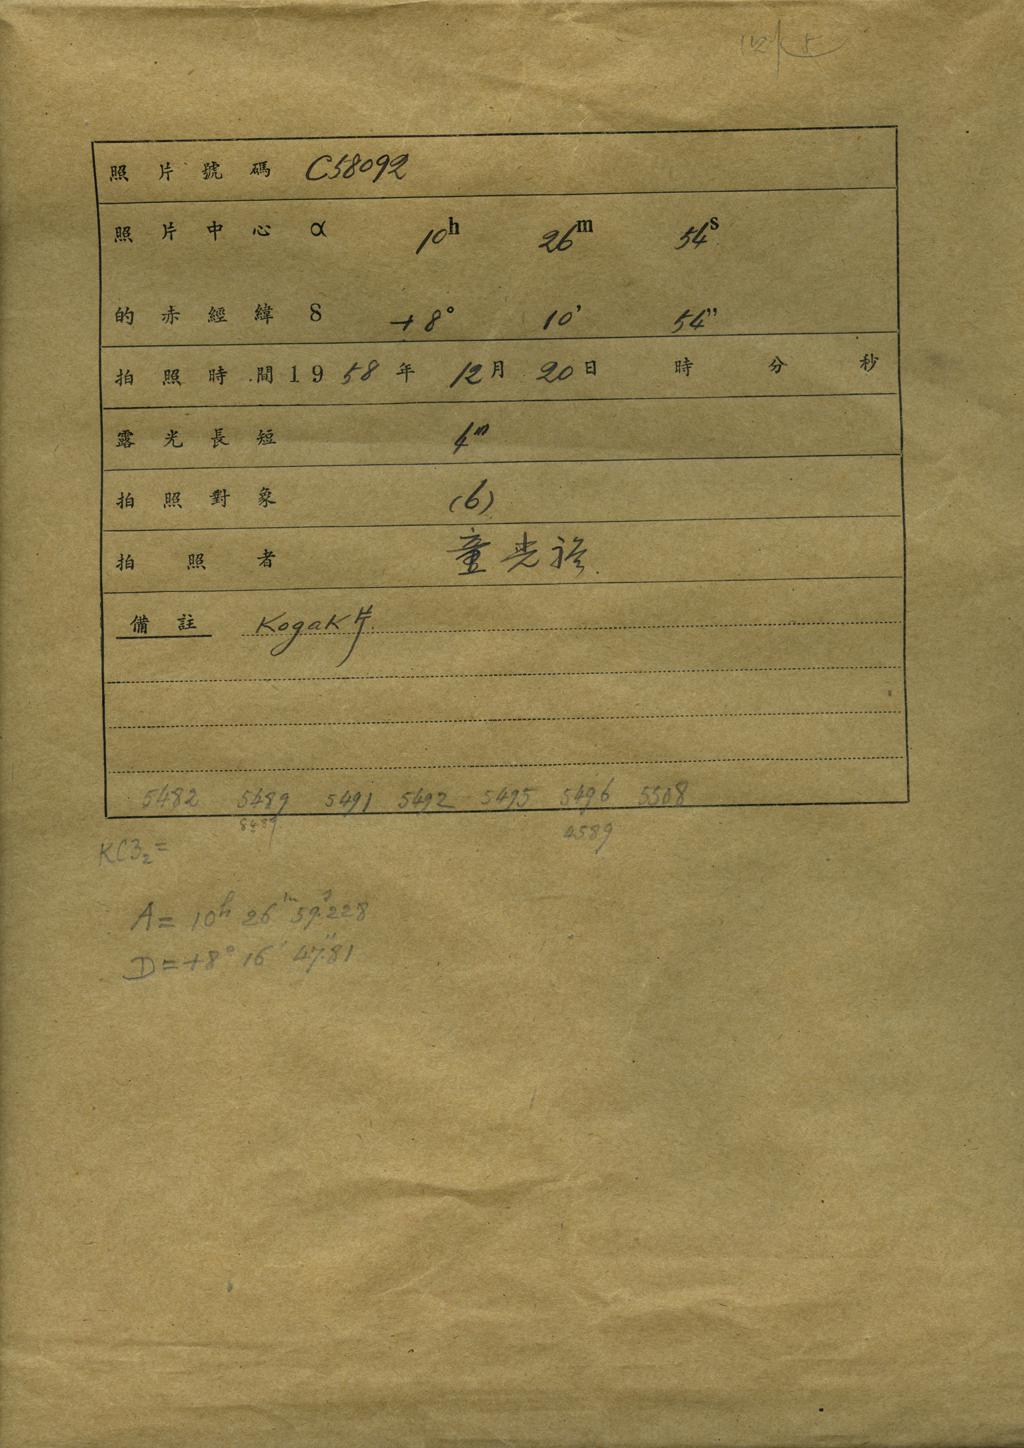 照片號碼 C58092
照片中心 α 10h 26m 54s
的赤經緯 δ +8° 10' 54"
拍照時間 1958年 12月 20日 時 分 秒
露光長短 4m
拍照對象 (6)
拍照者 童光
備註 Kogak
5482 5489 5491 5492 5495 5496 5508
8489 4589
KC3₂=
A= 10h 26m 59s.228
D=+8° 16' 47".81